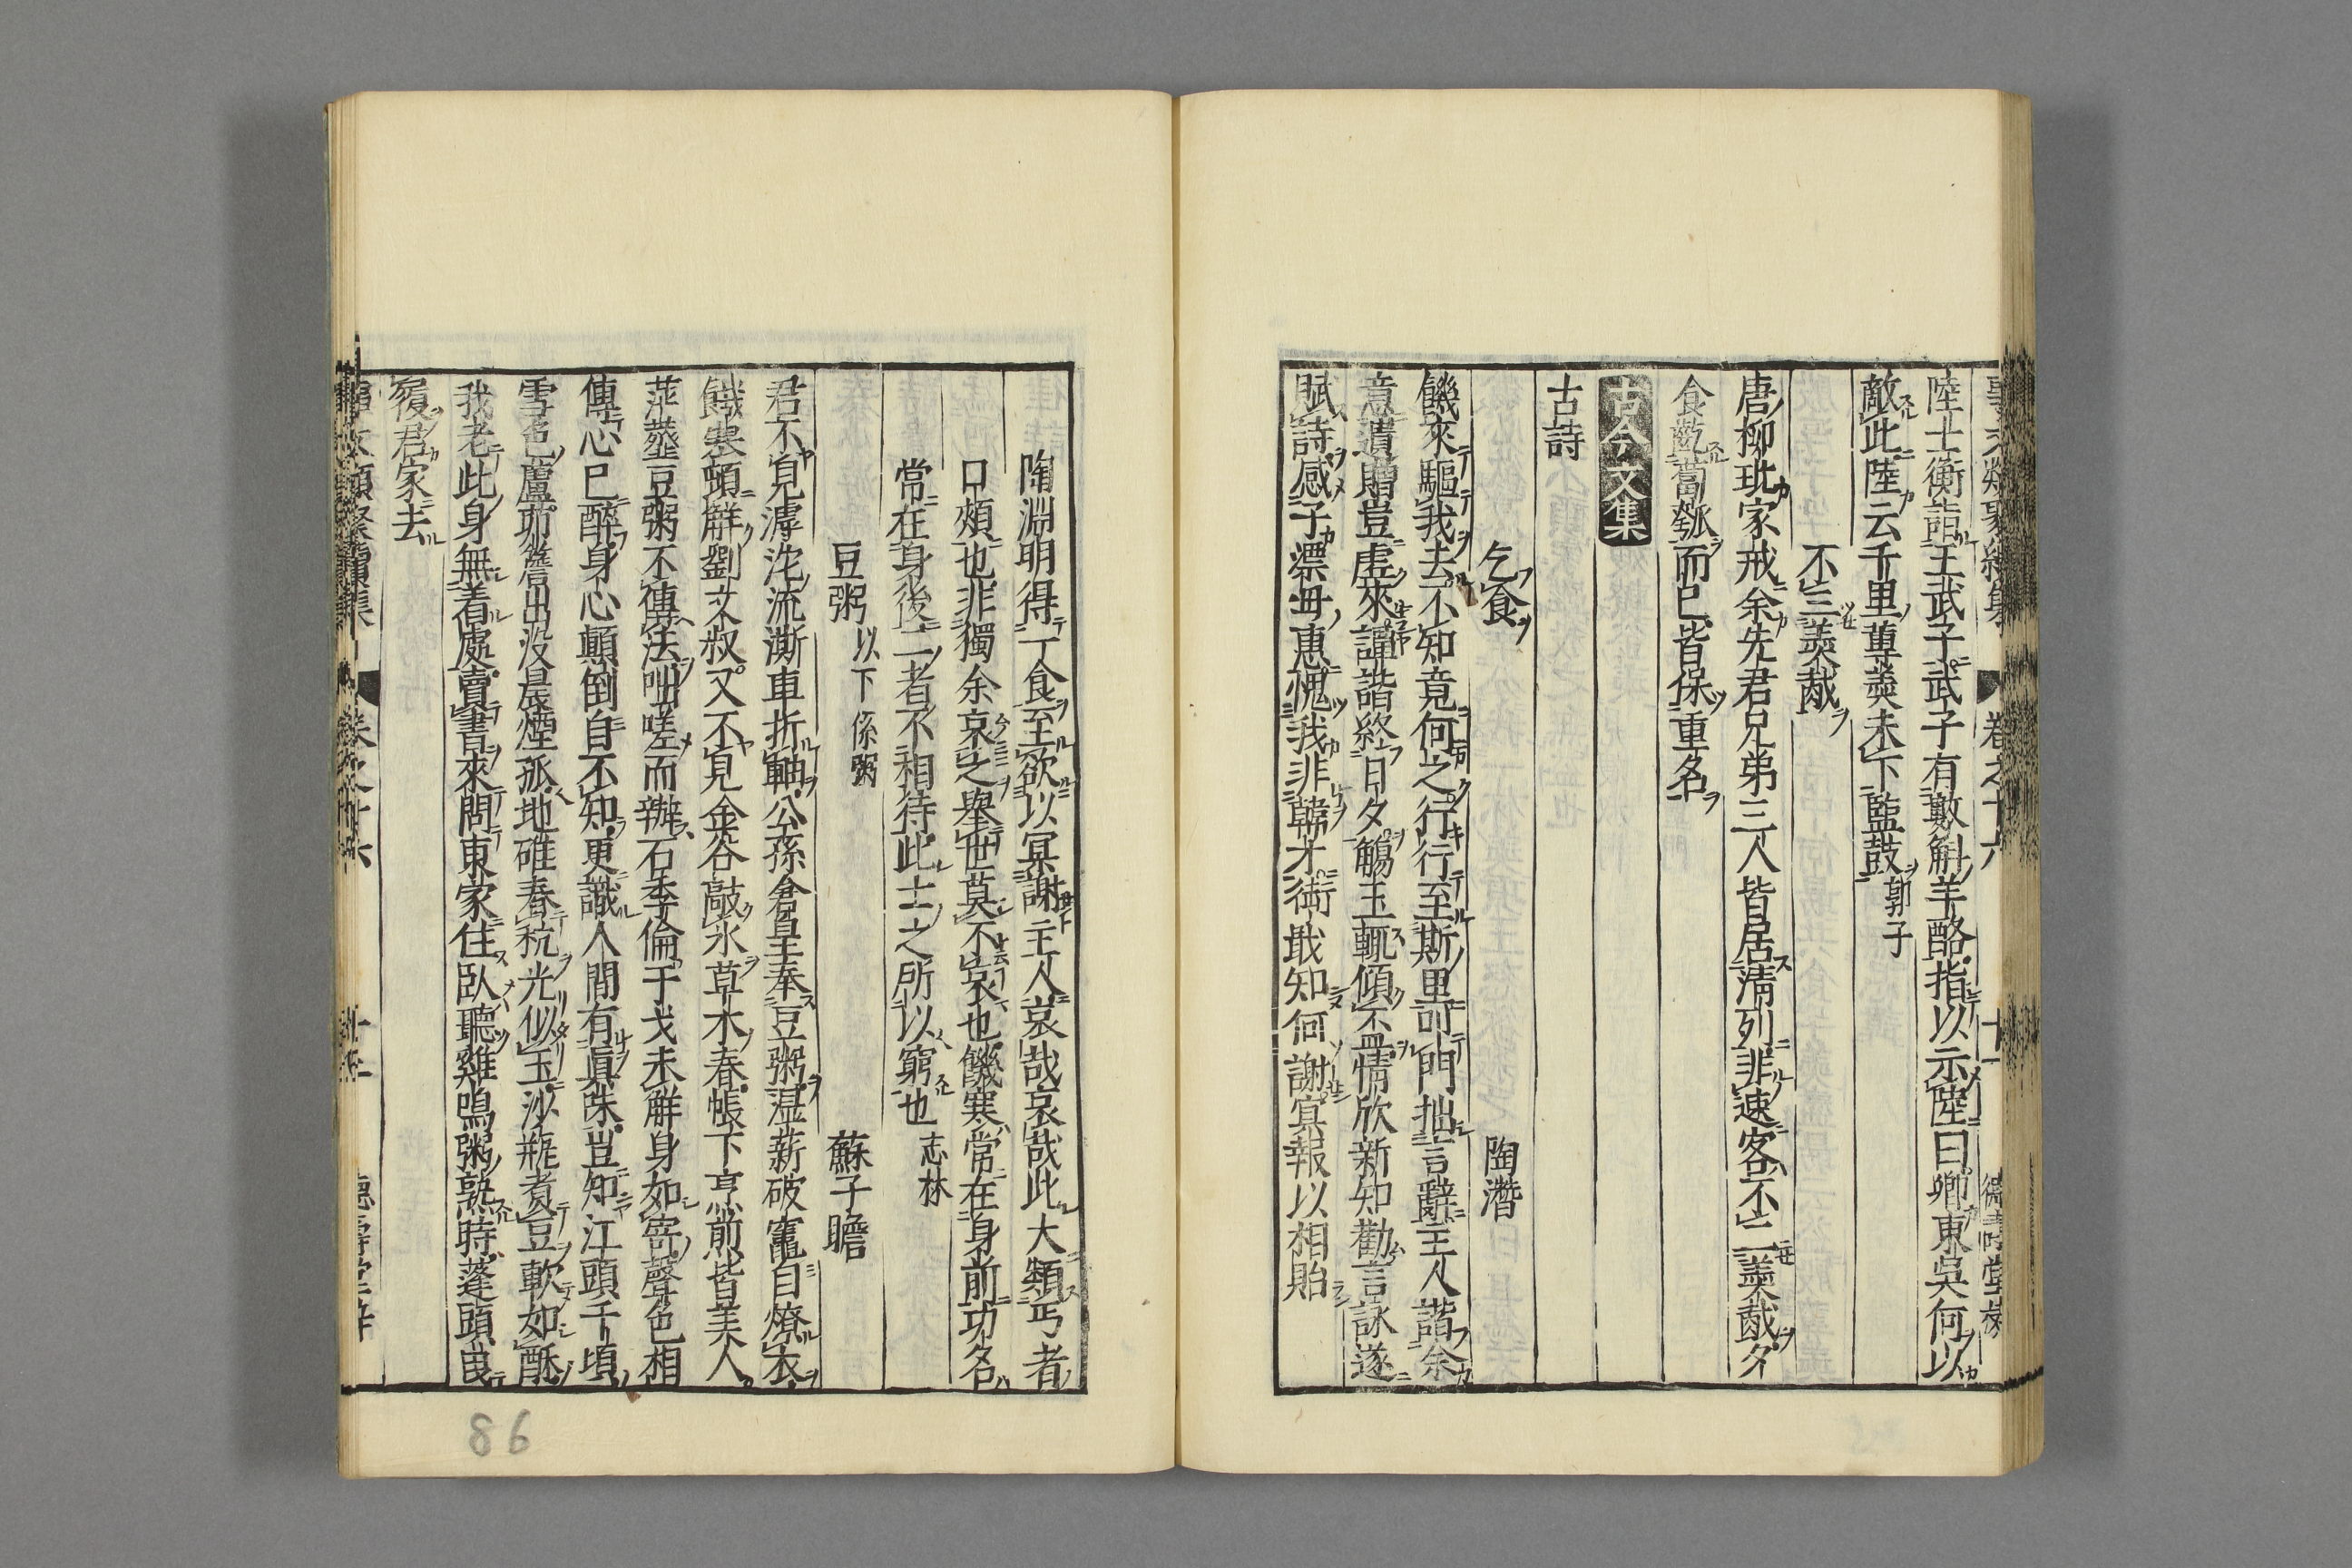 陸士衡詣王武子武子有數斛羊酪指以示陸曰卿東吳何以
敵此陸云千里蓴羹未下監鼓郭子
不三羹胾
唐柳玭家戒余先君兄弟三人皆居淸列非速客不二羹胾夕
食齕蔔瓠而已皆保重名
古今文集
古詩
乞食 陶潛
饑來驅我去不知竟何之行行至斯里叩門拙言辭主人諧余
意遺贈豈虛來談諧終日夕觴至輒傾盃情欣新知勸言詠遂
賦詩感子漂母惠愧我非韓才銜戢知何謝冥報以相貽
陶淵明得一食至欲以冥謝主人哀哉哀哉此大類丐者
口頰也非獨余哀之舉世莫不哀也饑寒常在身前功名
常在身後二者不相待此士之所以窮也志林
豆粥以下係粥 蘇子瞻
君不見滹沱流澌車折軸公孫倉皇奉豆粥濕薪破竈自燎衣
饑寒頓解劉文叔又不見金谷敲氷草木春帳下烹煎皆美人
萍虀豆粥不傳法咄嗟而辦石季倫干戈未解身如寄聲色相
傳心已醉身心顚倒自不知更識人間有眞味豈知江頭千頃
雪色蘆茆簷出沒晨煙孤地碓舂秔光似玉沙瓶煮豆軟如酥
我老此身無着處賣書來問東家住臥聽雞鳴粥熟時蓬頭曳
履君家去
卷之十六
86